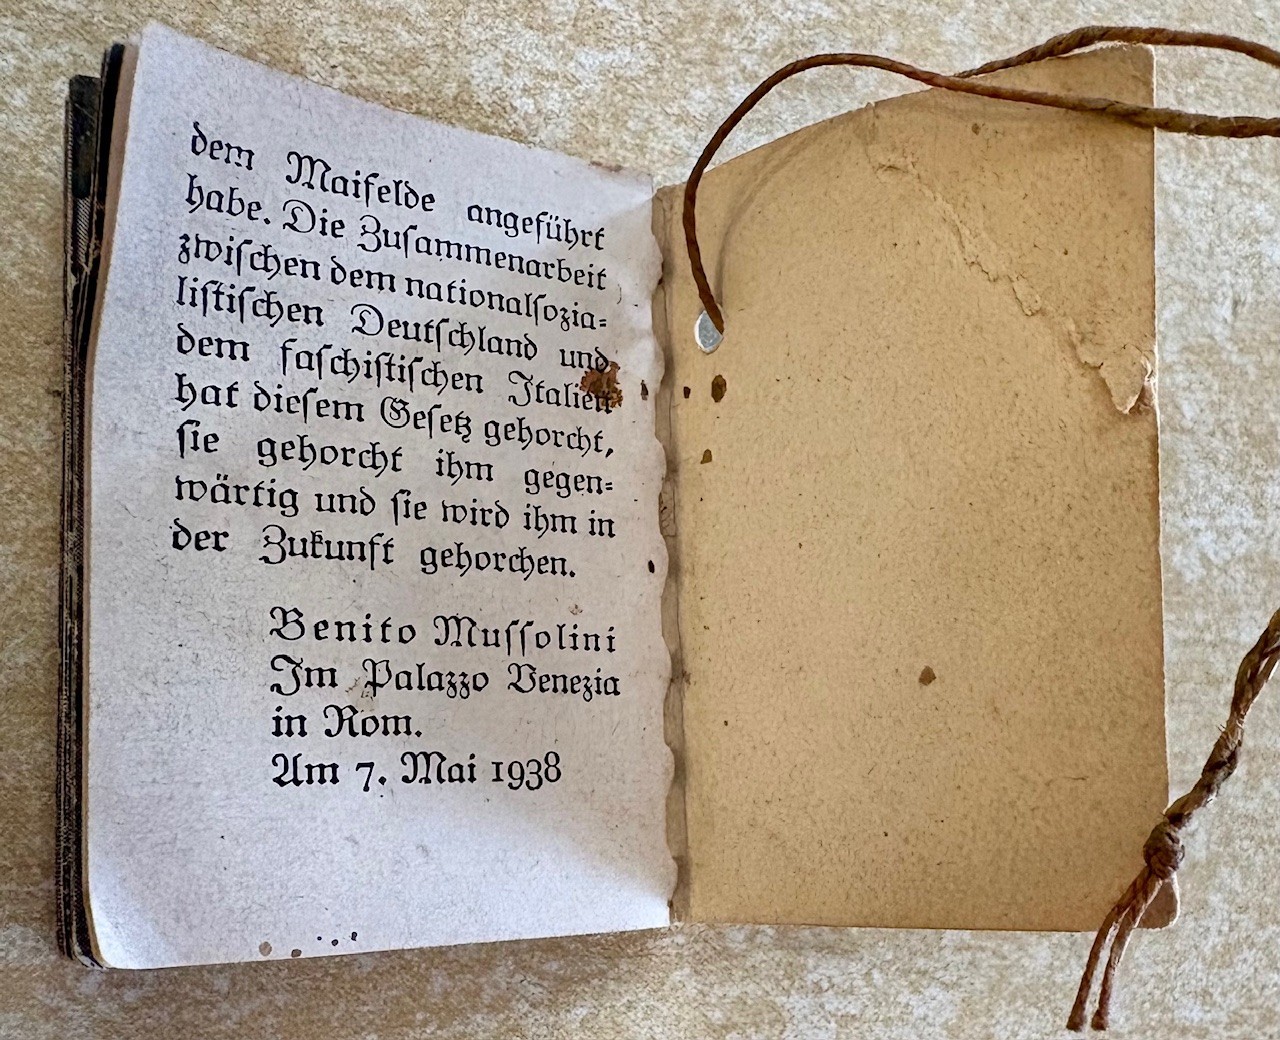 dem Maifelde angeführt
habe. Die Zuſammenarbeit
zwiſchen dem nationalſozia⸗
liſtiſchen Deutſchland und
dem faſchiſtiſchen Italien
hat dieſem Geſetz gehorcht,
ſie gehorcht ihm gegen⸗
wärtig und ſie wird ihm in
der Zukunft gehorchen.
Benito Muſſolini
Im Palazzo Venezia
in Rom.
Am 7. Mai 1938